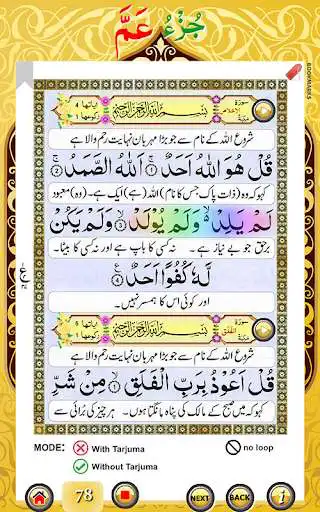 جُزْءُ عَمَّ
BOOKMARKS
سورۃ الاخلاص مکیۃ
بِسْمِ اللهِ الرَّحْمٰنِ الرَّحِيْمِ
اٰیاتها 4
رکوعها 1
شروع اللہ کے نام سے جو بڑا مہربان نہایت رحم والا ہے
قُلْ هُوَ اللّٰهُ اَحَدٌ ۝۱ اَللّٰهُ الصَّمَدُ ۝۲
کہو کہ وہ (ذات پاک جس کا نام) اللہ (ہے) ایک ہے۔ (وہ) معبود
لَمْ يَلِدْ۬ وَلَمْ يُوْلَدْ ۝۳ وَلَمْ يَكُنْ
برحق جو بے نیاز ہے۔ نہ کسی کا باپ ہے اور نہ کسی کا بیٹا۔
لَّهٗ كُفُوًا اَحَدٌ ۝۴
اور کوئی اس کا ہمسر نہیں۔
سورۃ الفلق
بِسْمِ اللهِ الرَّحْمٰنِ الرَّحِيْمِ
شروع اللہ کے نام سے جو بڑا مہربان نہایت رحم والا ہے
قُلْ اَعُوْذُ بِرَبِّ الْفَلَقِ ۝۱ مِنْ شَرِّ
کہو کہ میں صبح کے مالک کی پناہ مانگتا ہوں۔ ہر چیز کی بُرائی سے
MODE: With Tarjuma no loop
Without Tarjuma
78 NEXT BACK i